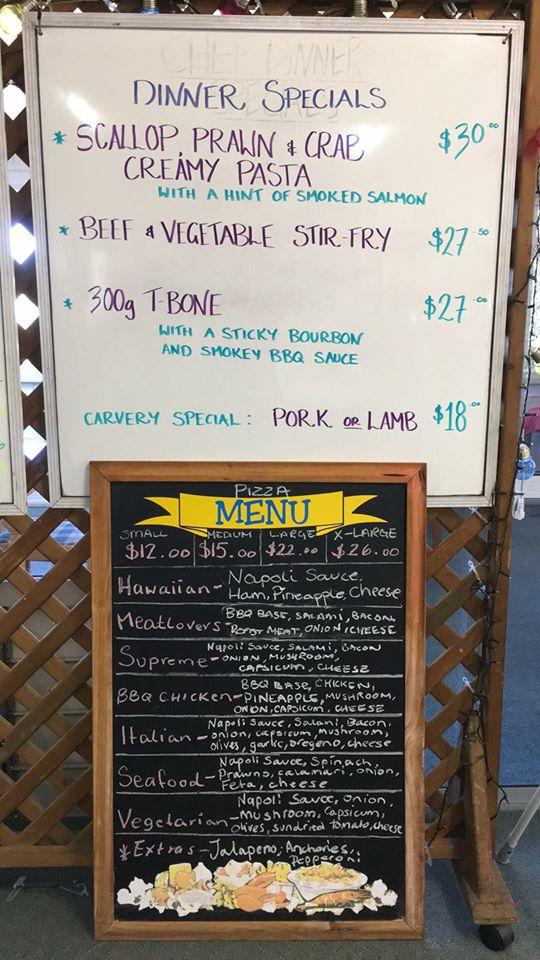 CHEF DINNER
SPECIALS
DINNER SPECIALS
* SCALLOP, PRAWN & CRAB $30.00
CREAMY PASTA
WITH A HINT OF SMOKED SALMON
* BEEF & VEGETABLE STIR-FRY $27.50
* 300g T-BONE $27.00
WITH A STICKY BOURBON
AND SMOKEY BBQ SAUCE
CARVERY SPECIAL: PORK OR LAMB $18.00
PIZZA
MENU
SMALL MEDIUM LARGE X-LARGE
$12.00 $15.00 $22.00 $26.00
Hawaiian - Napoli Sauce,
Ham, Pineapple, Cheese
Meatlovers - BBQ BASE, SALAMI, BACON,
ROAST MEAT, ONION, CHEESE
Supreme - Napoli Sauce, SALAMI, BACON
ONION, MUSHROOM,
CAPSICUM, CHEESE
BBQ CHICKEN - BBQ BASE, CHICKEN,
PINEAPPLE, MUSHROOM,
ONION, CAPSICUM, CHEESE
Italian - Napoli Sauce, Salami, Bacon,
onion, capsicum, mushroom,
olives, garlic, oregeno, cheese
Seafood - Napoli Sauce, Spinach,
Prawns, calamari, onion,
Feta, cheese
Vegetarian - Napoli Sauce, Onion,
Mushroom, Capsicum,
olives, sundried tomato, cheese
* Extras - Jalapeno, Anchovies,
Pepperoni